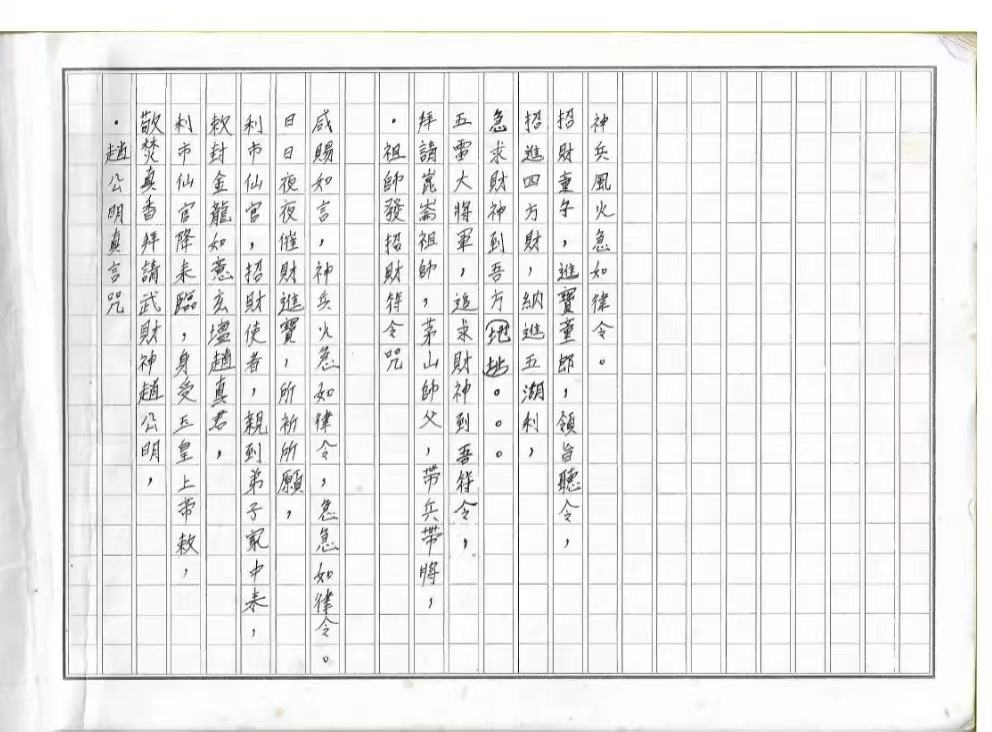 ・趙公明真言咒
敬焚真香拜請武財神趙公明，
利市仙官降來臨，身受玉皇上帝敕，
敕封金龍如意玄壇趙真君，
利市仙官，招財使者，親到弟子家中來，
日日夜夜催財進寶，所祈所願，
咸賜如言，神兵火急如律令，急急如律令。
・祖師發招財符令咒
拜請崑崙祖師，茅山師父，帶兵帶將，
五雷大將軍，追求財神到吾符令，
急求財神到吾方地址。。。
招進四方財，納進五湖利，
招財童子，進寶童郎，領旨聽令，
神兵風火急如律令。